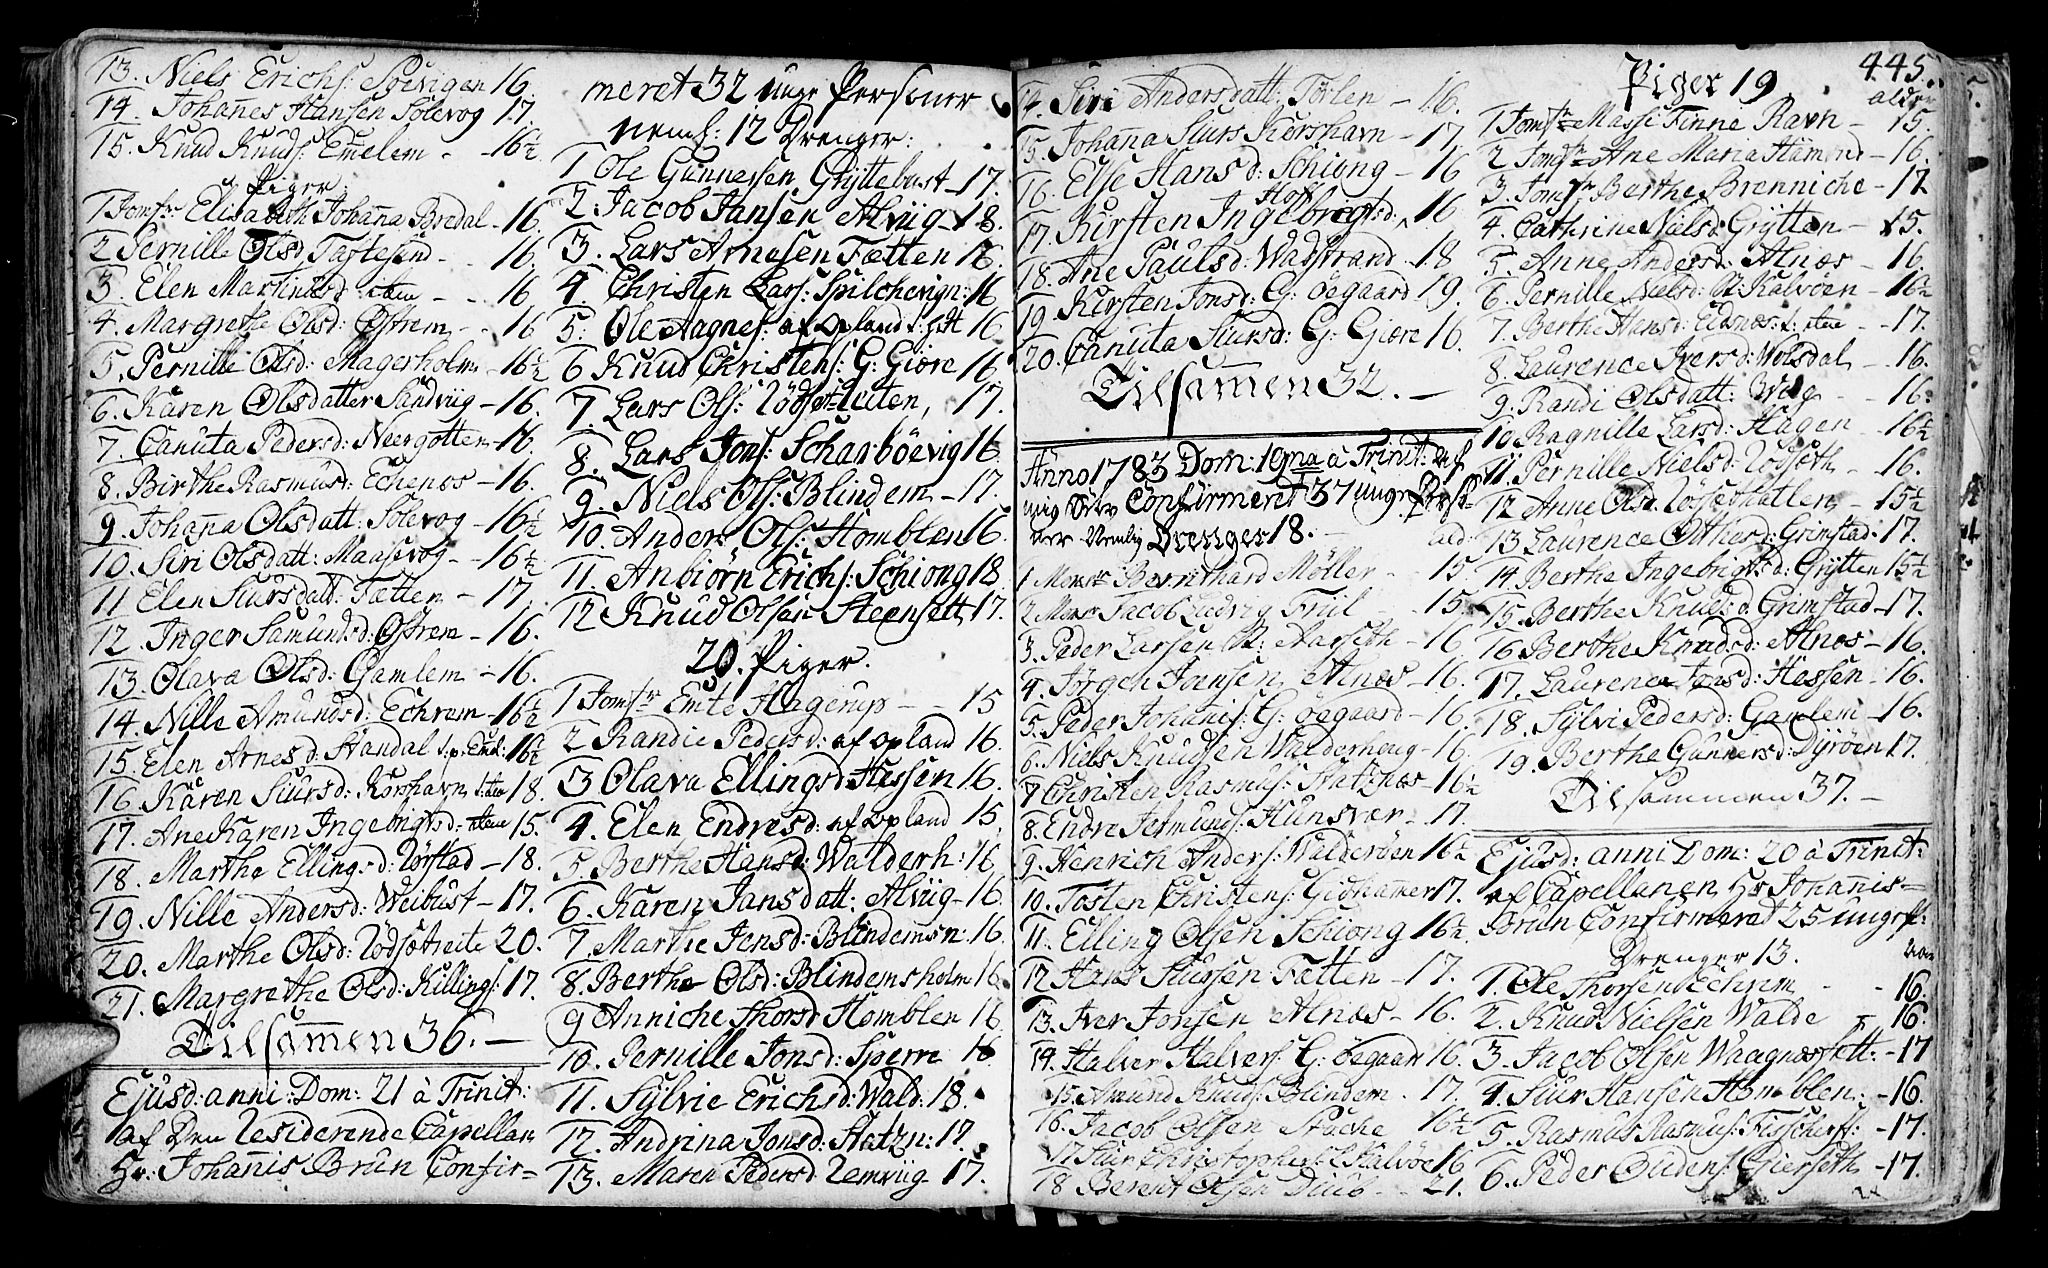 13. Niels Erichs: Spevigen 16.
14. Johañes Hansen Solevog 17.
15. Knud Knuds: Emelem - - 16½
Piger
1 Jomfr Elisabeth Johaña Bredal - 16.
2 Pernille Olsd Tastesend - - 16.
3. Elen Martinusd: item - - 16
4. Margrethe Olsd: Østrem - - 16
5. Pernille Olsd: Magerholm - 16½
6. Karen Olsdatter Sandviig - 16.
7. Canuta Peders d: Neergotten - 16.
8. Birthe Rasmusd: Echenos - 16.
9. Johaña Olsdatt: Solevog - 16½
10. Siri Olsdatt: Maasevog - - 16½
11 Elen Siursdatt: Fætten - 17.
12. Inger Samundsd: Østrem - 16.
13. Olava Olsd: Gamlem - 16.
14. Nille Amundsd: Echrem - 16½
15. Elen Arnes d: Standal 16½
16. Karen Siursd: Korshavn 18.
17. Ane Karen Ingebrigtsd: item 15.
18. Marthe Ellings d: Rörstad - 18.
19. Nille Anders d: Weibust - 17.
20. Marthe Olsd: Rödsetreite 20.
21. Margrethe Olsd: Killings: 17.
Tilsam̃en 36. -
Ejusd: anni: Dom: 21 à Trinit:
af Den Residerende Capellan
Hr. Johañis Brun Confir=
meret 32 unge Personer
neml: 12 Drenger:
1 Ole Gunnersen Gryttebust - 17.
2. Jacob Jansen Alviig - 18.
3. Lars Arnesen Fætten 16.
4. Christen Lars: Spilchevign: 16
5. Ole Aagnes: af Opland 16.
6 Knud Christens: G: Giöre 16
7. Lars Ols: Rödsetleiten, 17.
8. Lars Jons: Scharböevig 16.
9. Niels Ols: Blindem - 17.
10. Anders Ols: Homblen 16.
11. Anbiörn Erichs: Schiong 18.
12 Knud Olsen Steensett 17.
20. Piger.
1 Jomfr Emte Hagerup - - 15
2 Randie Peders d: af Opland 16.
3 Olava Ellingsd Hessen 16.
4. Elen Endresd: af Opland 15.
5. Berthe Hansd: Walderh: 16
6. Karen Jansdatt: Alviig - 16.
7. Marthe Jensd: Blindemsn: 16.
8. Berthe Olsd: Blindemsholm 16
9 Anniche Thorsd Homblen 16
10. Pernille Jonsd: Sperre 16
11. Sylvie Erichsd: Wald: 18.
12. Andrina Jonsd: Statzn: 17.
13. Maren Pedersd Remviig 17.
14. Siri Andersdatt: Törlen - 16.
15. Johaña Siurs Korshavn - 17.
16. Else Hans d: Schiong - 16
17. Kirsten Ingebrigtsd: Hoff 16
18. Ane Paulsd: Wadstrand - 18
19 Kirsten Jonsd: G: öegaard 19.
20. Canuta Siursd: G: Giöre 16.
Tilsam̃en 32. -
Anno 1783 Dom: 19na à Trinit: af
mig Confirmeret 37 unge Perso
ner Nemlig Drenger 18. - ald:
1 Mons: Bernthard Möller - 15
2 Mons: Jacob Ludvig Friil - 15
3. Peder Larsen Aarseth - 16
4. Jörgen Jansen Alnæs - 16.
5. Peder Johañis: G: öegaard - 16.
6. Niels Knudsen Walderhoug - 16.
7 Christen Rasmus: Statznæs - 16½
8. Endre Jetmunds: Hunsvær - 17.
9. Henrich Anders: Walderöen 16½
10. Tosten Christens: Gidhamer 17.
11. Elling Olsen Schiong 16½
12 Hans Siursen Fætten - 17.
13. Iver Jonsen Alnæs - 16.
14. Halver Halvers: G: öegaar 16.
15. Amund Knuds: Blindem. 17.
16. Jacob Olsen Stöche 16½
17 Siur Christophers: Kalvöe 16
18 Berent Olsen Diub - 21.
445.
Piger 19. alder
1 Jomfr Masse Finne Ravn - 15.
2 Jomfr Ane Maria Hamond - 16.
3. Jomfr Berthe Brenniche - 17
4. Catherine Nielsd: Grytten - 15.
5. Anne Andersd: Alnæs - 16
6. Pernille Nielsd: Kalvöen - 16½
7. Berthe Hansd: Eidsnæs - 17.
8. Laurence Iversd: Wolsdal - 16.
9. Randi Olsdatt: Wiig - 16.
10 Ragnille Larsd: Hagen - 16½
11. Pernille Nielsd: Rödseth - 16.
12 Anne Olsd: - 15½
13 Laurence Othersd: Grimstad. 17.
14. Berthe Ingebrigtsd: Grytten 15½
15. Berthe Knuds d: Grimstad - 17.
16 Berthe Knudsd: Alnæs - 16.
17. Laurence Jonsd: Hessen - 16.
18. Sylvi Pedersd: Gamlem - 16.
19. Berthe Gunnersd: Dyröen 17.
Tilsammen 37. -
Ejusd: anni Dom: 20 à Trinit:
af Capellanen Hr Johañis
Brun Confirmeret 25 unge P:
Drenger 13. Aar
1. Ole Thorsen Echrem - - 16.
2. Knud Nielsen Walde - 16.
3. Jacob Olsen Waagnæssett: - 17
4. Siur Hansen Homblen: - 16.
5. Rasmus Rasmus: Fisscherst: - 17.
6. Peder Oudens: Gierseth - 17.